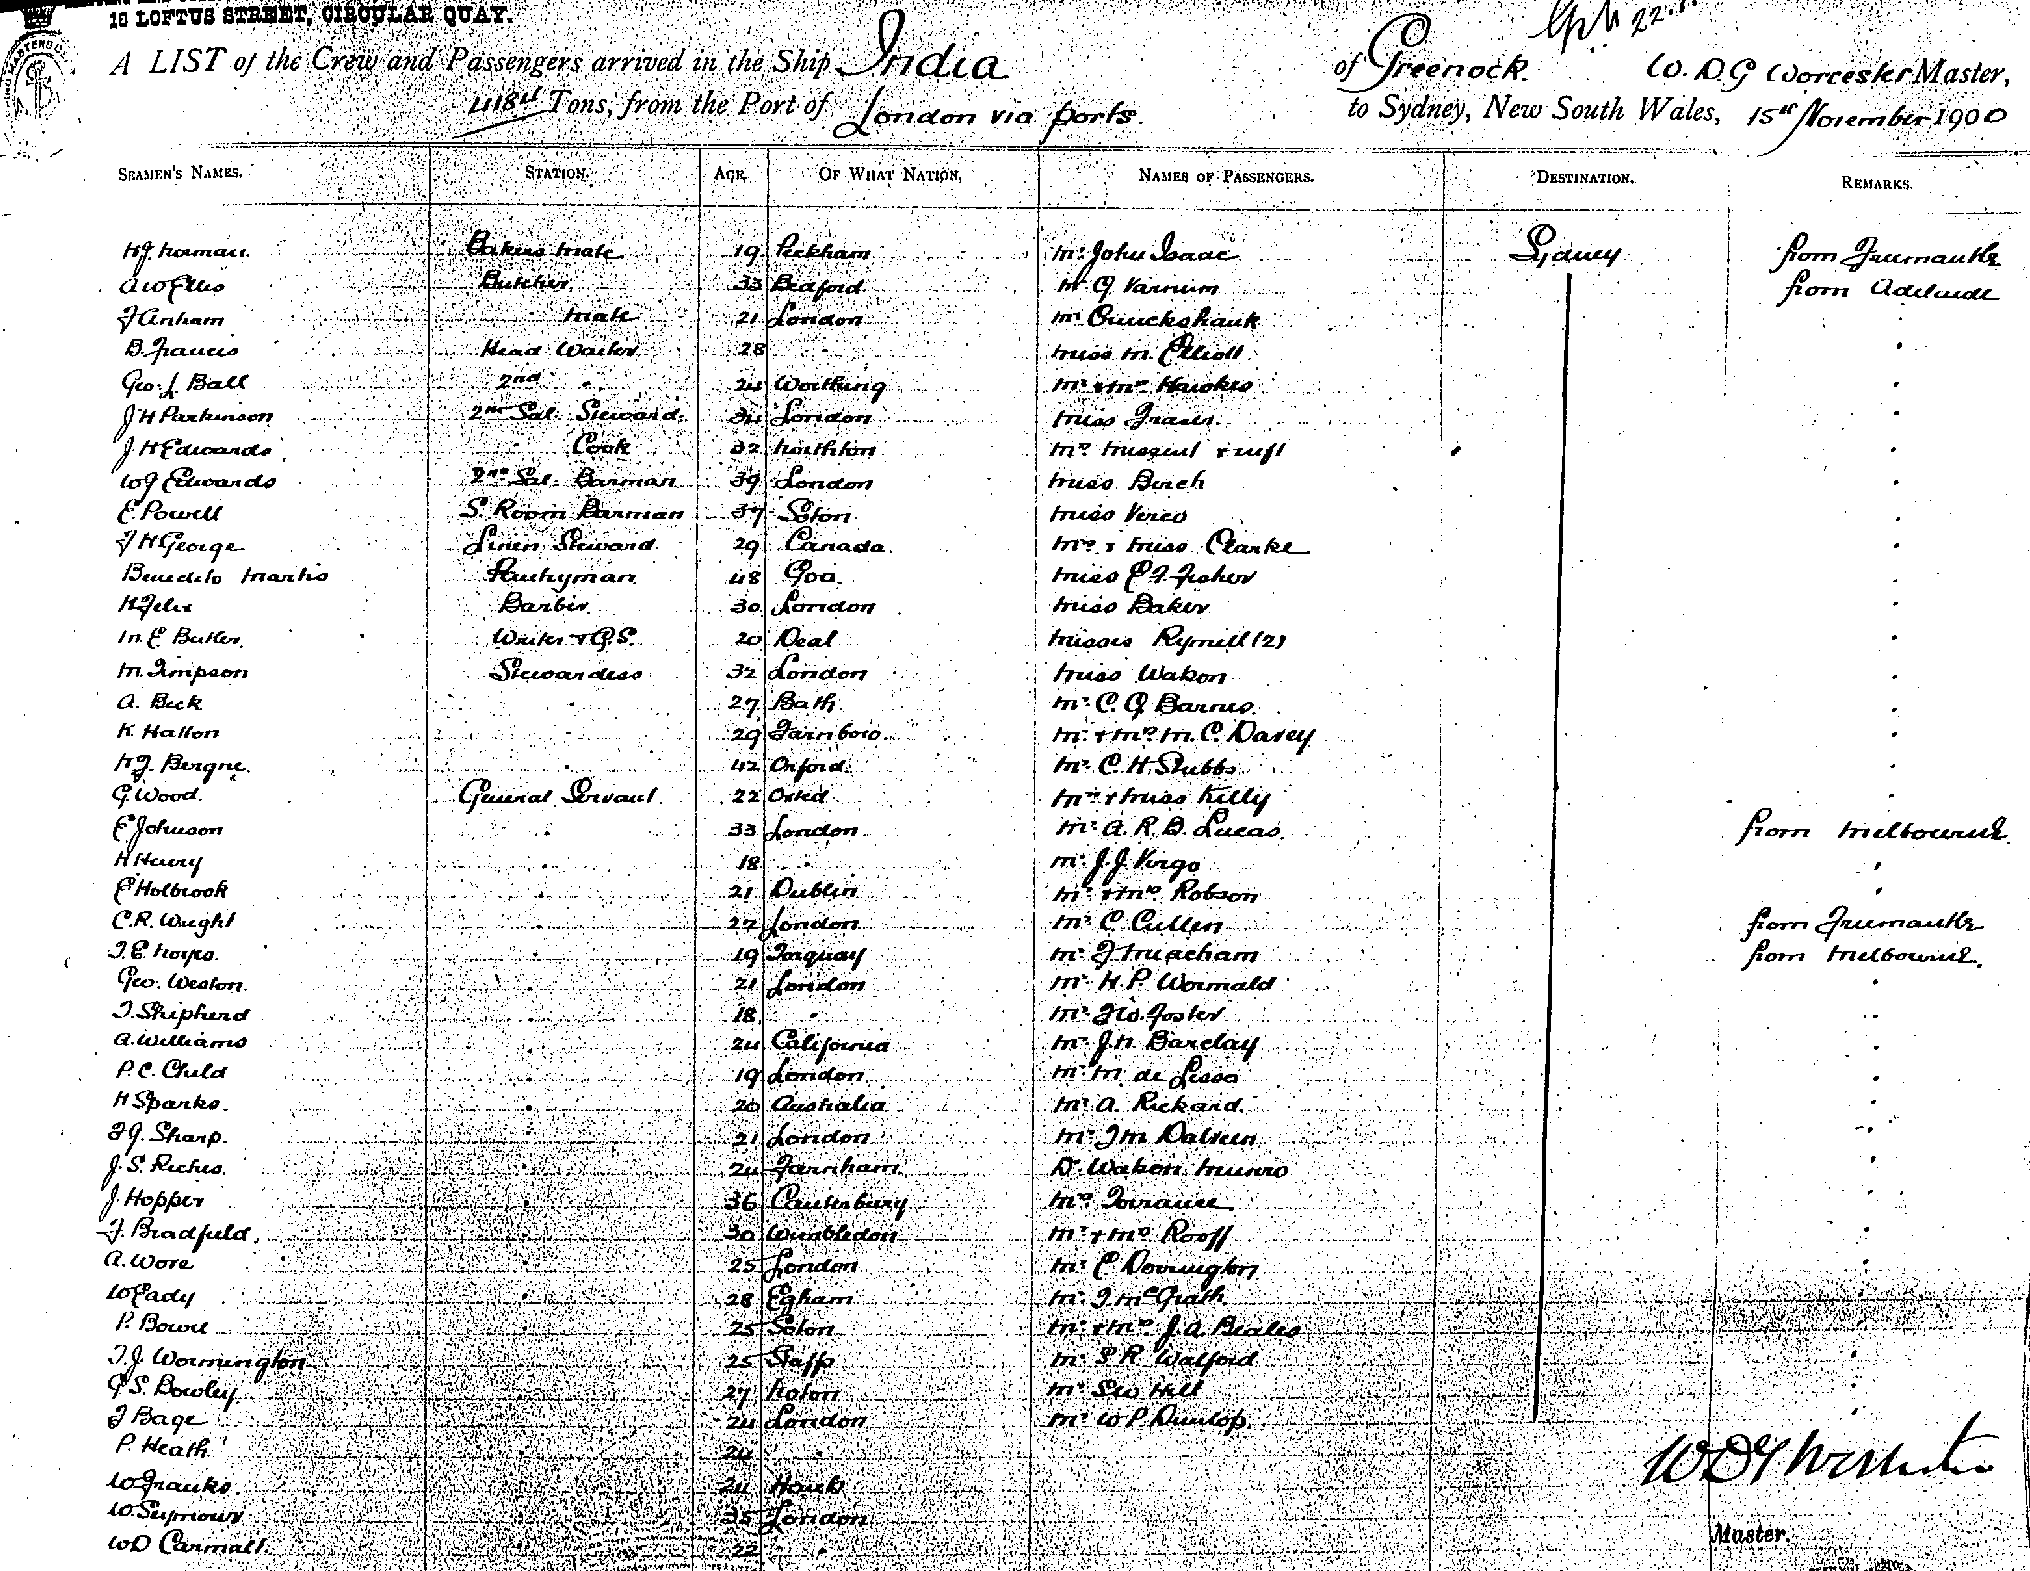 18 LOFTUS STREET, CIRCULAR QUAY.
A LIST of the Crew and Passengers arrived in the Ship India of Greenock. W. D. G Worcester Master,
Tons, from the Port of London via ports. to Sydney, New South Wales, 15th November 1900
SEAMEN'S NAMES. STATION. AGE. OF WHAT NATION. NAMES OF PASSENGERS. DESTINATION. REMARKS.
H J Norman. Bakers Mate 19 Peckham Mr John Isaac Sydney from Freemantle
A W Ellis Butcher 33 Bedford Mr G Varnum from Adelaide
J Anham " Mate 21 London Mr Cruickshank "
B. Francis Head Waiter 28 " Miss M. Elliott "
Geo. J. Ball 2nd " 24 Worthing Mr & Mrs Hawkes "
J H Parkinson 2nd Sal. Steward. 34 London Miss Fraser. "
J H Edwards " Cook 32 Mr & wife "
W J Edwards 2nd Sal. Barman 39 London Miss Birch "
E. Powell S. Room Barman 37 Soton Miss Verco "
J H George Linen Steward 29 Canada Mrs & Miss Clarke "
Benedito Martis Pantryman 48 Goa Miss E J Fisher "
H Felix Barber 30 London Miss Baker "
M. E Butler. Waiter & G.S. 20 Deal Misses Rymill (2) "
M. Timpson Stewardess 32 London Miss Wakon "
A. Beck " 27 Bath Mr C. G Barnes. "
K. Hatton " 29 Farnboro. Mr & Mrs M. C. Davey "
H J. Bergne. " 42 Oxford. Mr C. H. Stubbs "
G. Wood. General Servant. 22 Oxted Mrs & Miss Kelly "
E Johnson " 33 London Mr A. R. B. Lucas. from Melbourne.
H Henry " 18 " Mr J. J. Virgo "
E Holbrook " 21 Dublin Mr & Mrs Robson "
C. R. Wright " 27 London Mr C Cullen from Freemantle
T. E. Noyes. " 19 Torquay Mr J Meacham from Melbourne.
Geo. Weston. " 21 London Mr H. P. Wormald "
T. Shipherd " 18 " Mr F W. Foster "
A. Williams " 24 California Mr J. N. Barclay "
P. C. Child " 19 London Mr M. de Lissa "
H Sparks. " 20 Australia Mr A. Rickard. "
F J. Sharp. " 21 London Mr J M "
J. S. Riches. " 24 Farnham Dr Wakon Munro "
J. Hopper " 36 Canterbury Mrs Torrance
J. Bradfield. " 30 Wimbledon Mr & Mrs Rooff "
A. Wore " 25 London Mr E Dorrington "
W Eady " 28 Egham Mr J. McGrath. "
P. Bowie " 25 Soton Mr & Mrs J. A Beales "
T. J. Wormington " 25 Staffs Mr S R Walford "
G S. Bowley " 27 Mr S W Hill "
J Bage " 24 London Mr W P Dunlop. "
P. Heath " 24 "
W Franks. " 24
W. Seymour " 35 London
W D Carmalt. " 22 "
W D G Worcester
Master.